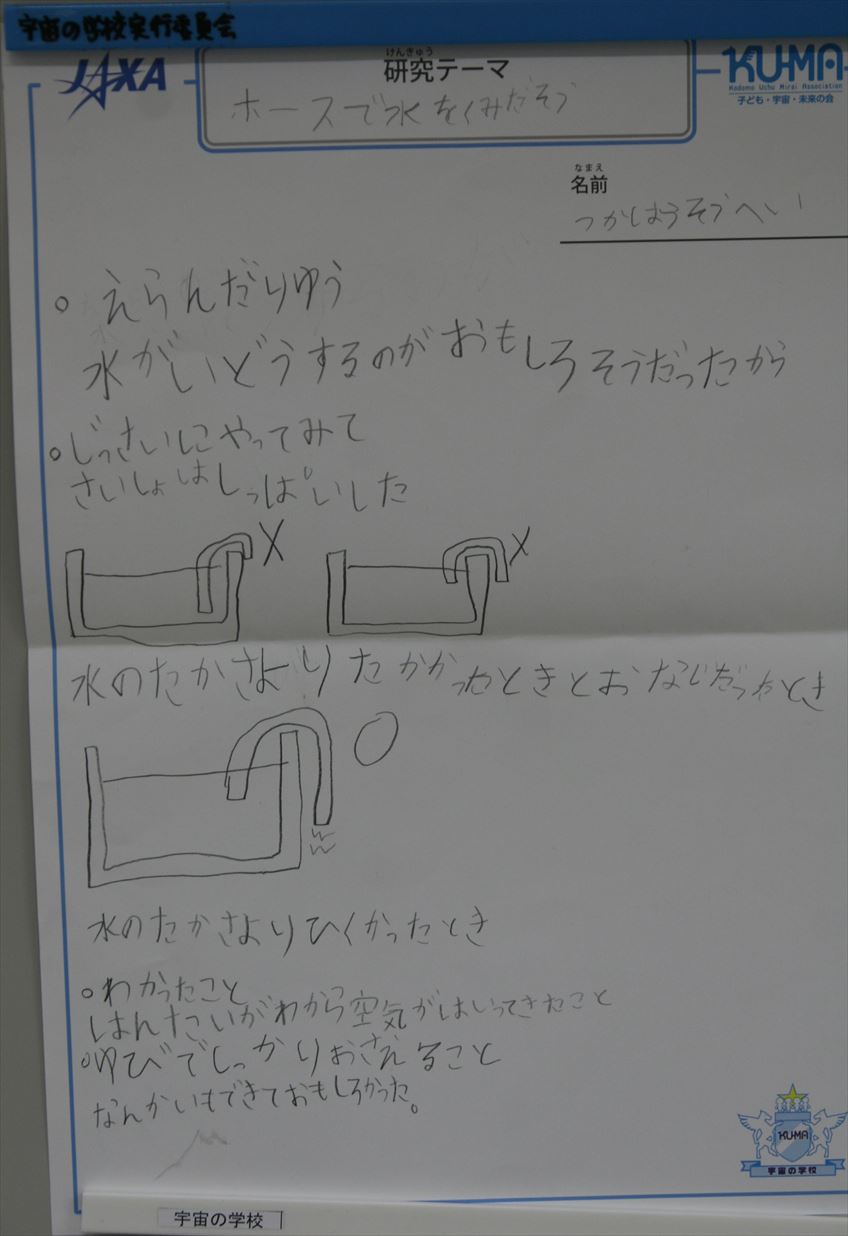 宇宙の学校実行委員会
JAXA
けんきゅう
研究テーマ
ホースで水をくみだそう
KU-MA
Kodomo Uchu Mirai Association
子ども・宇宙・未来の会
なまえ
名前
つかはらそうへい
○えらんだりゆう
水がいどうするのがおもしろそうだったから
○じっさいにやってみて
さいしょはしっぱいした
X X
水のたかさよりたかかったときとおなじだったとき
○
水のたかさよりひくかったとき
○わかったこと
はんたいがわから空気がはいってきたこと
○ゆびでしっかりおさえること
なんかいもできておもしろかった。
KU-MA
宇宙の学校
宇宙の学校